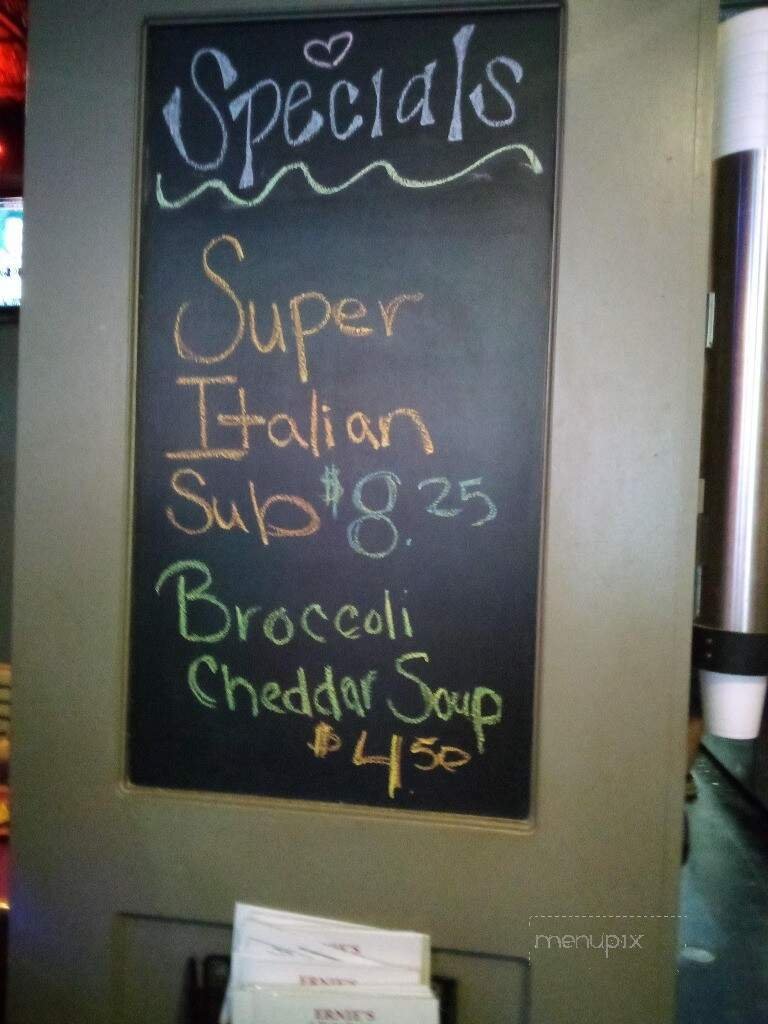 Specials
Super
Italian
Sub $8.25
Broccoli
Cheddar Soup
$4.50
menupix
ERNIE'S
ERNIE'S